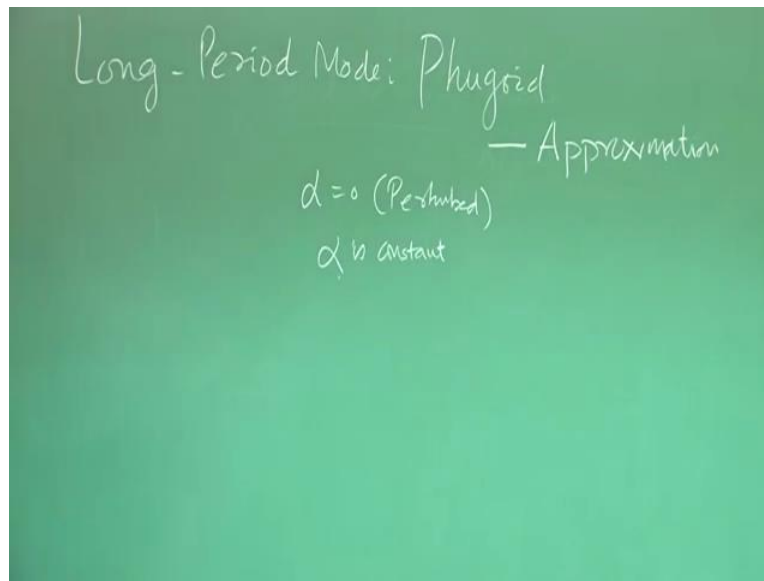 Long-Period Mode: Phugoid
— Approximation
α = 0 (Perturbed)
α is constant